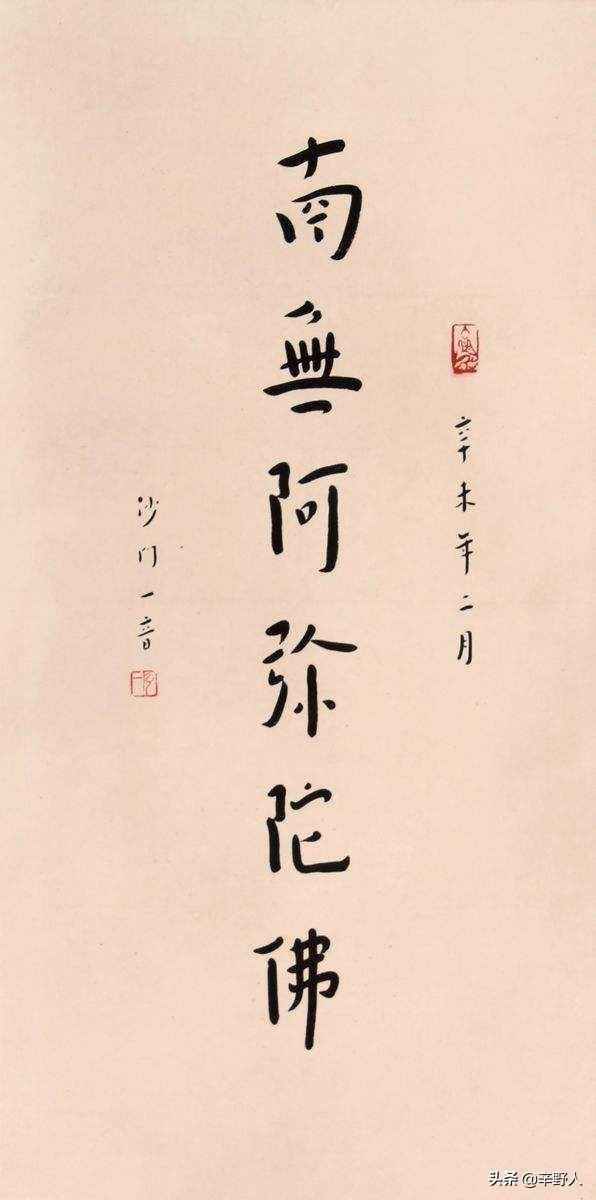 辛未年二月
南無阿弥陀佛
沙门一音
头条 @辛野人